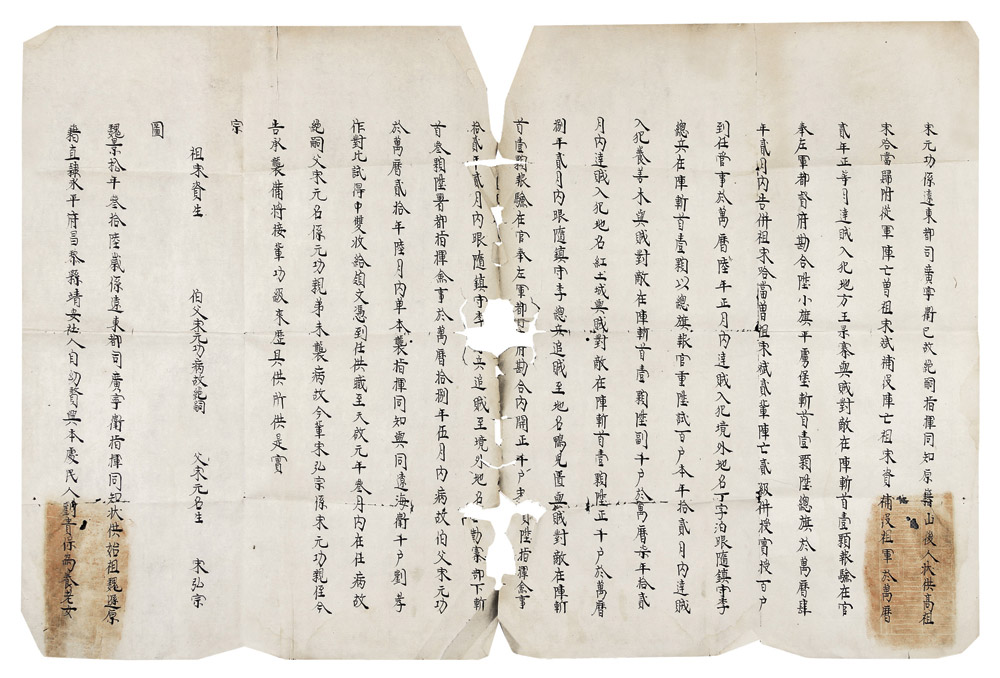 宋元功係遼東都司廣寧衛已故絕嗣指揮同知原籍山後人狀供高祖
宋哈當歸附從軍陣亡曾祖宋斌補役陣亡祖宋資補役祖軍於萬曆
貳年正等月達賊入犯地方王景寨與賊對敵在陣斬首壹顆報驗在官
奉左軍都督府勘合陞小旗平虜堡斬首壹顆陞總旗於萬曆肆
年貳月內告併祖宋哈當曾祖宋斌貳輩陣亡貳級併授實授百戶
到任管事於萬曆陸年正月內達賊入犯境外地名丁字泊跟隨鎮守李
總兵在陣斬首壹顆以總旗報官重陞試百戶本年拾貳月內達賊
入犯養善木與賊對敵在陣斬首壹顆陞副千戶於萬曆柒年拾貳
月內達賊入犯地名紅土城與賊對敵在陣斬首壹顆陞正千戶於萬曆
捌年貳月內跟隨鎮守李總兵追賊至地名鴨兒匱與賊對敵在陣斬
首壹顆報驗在官奉左軍都府勘合內開正千戶宋資陞指揮僉事
拾貳年貳月內跟隨鎮守李兵追賊至境外地名勘案部下斬
首叁顆陞署都指揮僉事於萬曆拾捌年伍月內病故伯父宋元功
於萬曆貳拾年陸月內單本襲指揮同知與同遼海衛千戶劉孝
作對比試得中雙收給領文憑到任供職至天啟元年叁月內在任病故
絕嗣父宋元名係元功親弟未襲病故今輩宋弘宗係宋元功親侄今
告承襲備將接輩功級來歷具供所供是實
宗
祖宋資生 伯父宋元功病故絕嗣 父宋元名生 宋弘宗
圖
魏景拾年叁拾陸歲係遼東都司廣寧衛指揮同知狀供始祖魏遜原
籍直隸永平府昌黎縣靖安社人自幼贅與本處民人劉青保為養老女